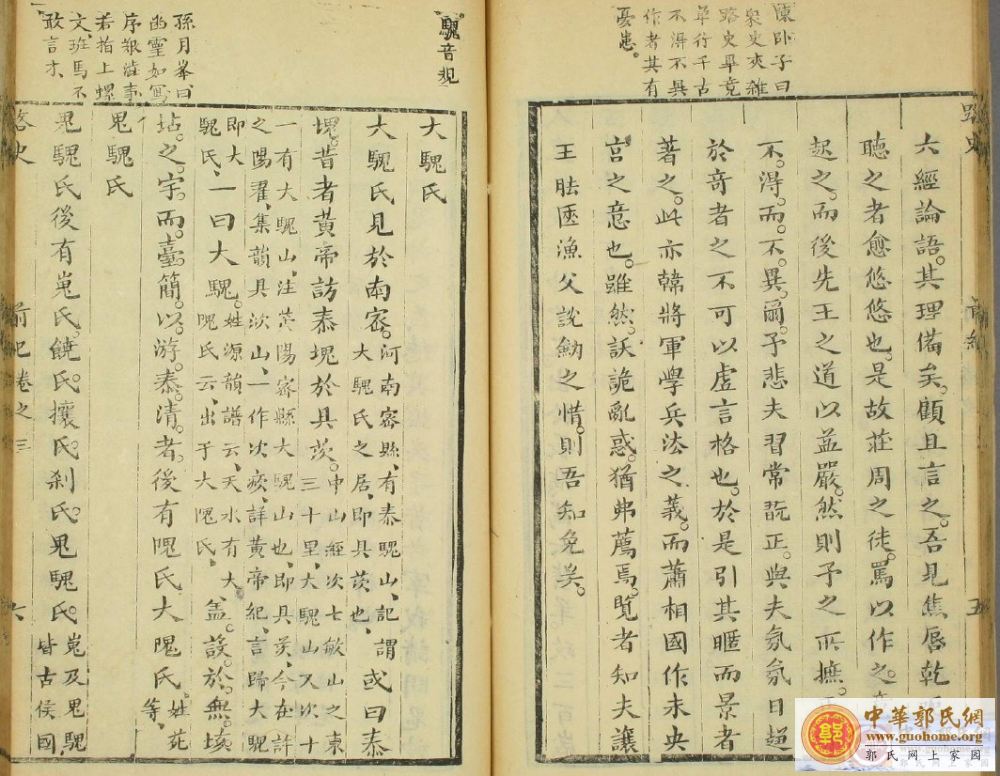 陳卧子曰
衆史夾雜
路史畢竟
單行千古
不得不異
作者其有
憂患。
路史
六經論語。其理備矣。顧且言之。吾見焦唇乾
聽之者愈悠悠也。是故莊周之徒。罵以作之。
起之。而後先王之道以益嚴。然則予之所摭。
不。得。而。不。異。爾。予悲夫習常翫正。與夫氛氛日趨
於奇者之不可以虛言格也。於是引其暱而景者
著之。此亦韓將軍學兵法之義。而蕭相國作未央
宮之意也。雖然。訞詭亂惑。猶弗薦焉。覽者知夫讓
王胠匧漁父說劒之情。則吾知免矣。
五
騩音規
孫月峯曰
幽靈如寫
序報造事
若指上螺
文、班馬不
敢言才、
大騩氏
大騩氏見於南密。河南密縣、有泰騩山、記謂大騩氏之居、即具茨也、或曰泰
塊。昔者黃帝訪泰塊於具茨。中山經次七敏山之東三十里、大騩山又次十
一有大騩山、注滎陽密縣大騩山也、即具茨、今在許之陽翟、集韻具次山、一作次㾊、詳黃帝紀、言歸大騩
即大騩氏、一曰大騩。姓源韻譜云、天水有大隗氏云、出于大隗氏、蓋。設。於。無。垓
坫。之。宇。而。臺。簡。以。游。泰。清。者。後有隗氏大隗氏。姓苑等、
鬼騩氏
鬼騩氏後有嵬氏。饒氏。攘氏。刹氏。鬼騩氏。嵬及鬼騩皆古侯國
路史
前紀卷之三
六
中華郭氏網
www.guohome.org
郭氏网上家园